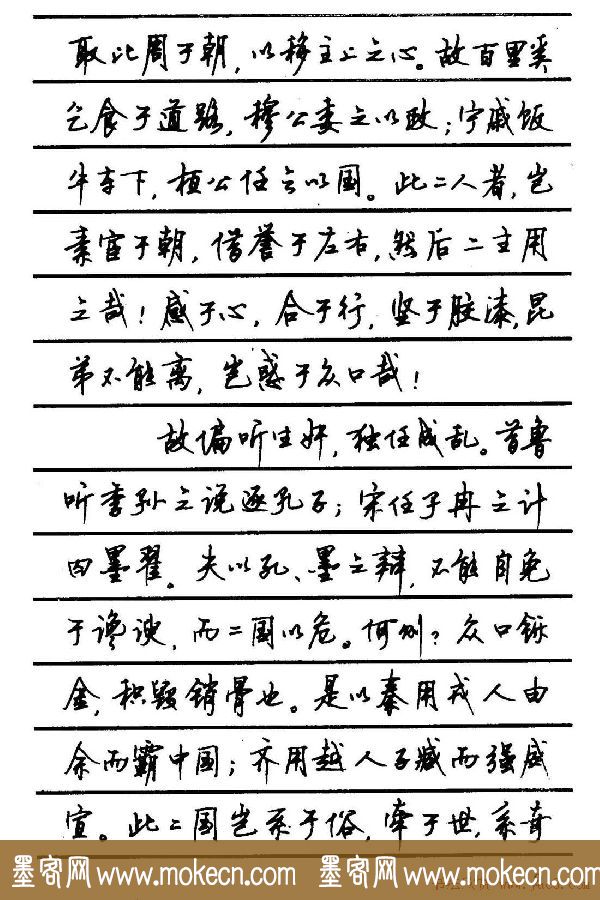 取比周于朝，以移主上之心。故百里奚
乞食于道路，穆公委之以政；宁戚饭
牛车下，桓公任之以国。此二人者，岂
素宦于朝，借誉于左右，然后二主用
之哉！感于心，合于行，坚于胶漆，昆
弟不能离，岂惑于众口哉！
故偏听生奸，独任成乱。昔鲁
听季孙之说逐孔子；宋任子冉之计
囚墨翟。夫以孔、墨之辩，不能自免
于谗谀，而二国以危。何则？众口铄
金，积毁销骨也。是以秦用戎人由
余而霸中国；齐用越人子臧而强威
宣。此二国岂系于俗，牵于世，系奇
墨客网 www.mokecn.com 墨客网 www.mokecn.com